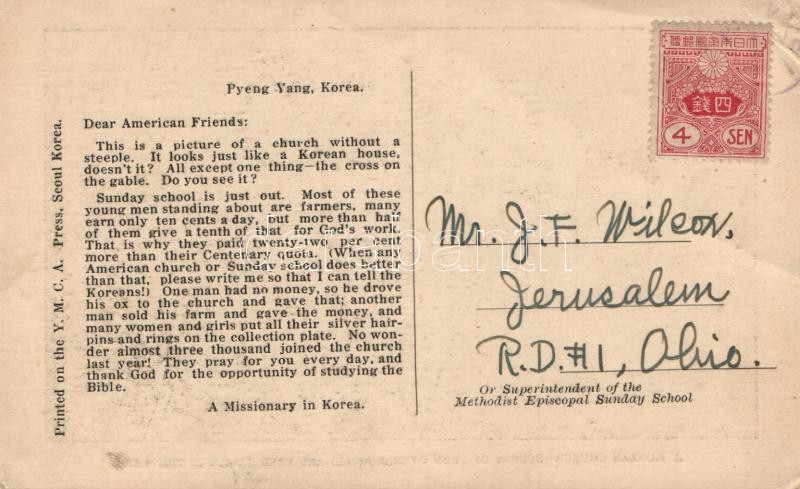 Printed on the Y. M. C. A. Press, Seoul Korea.
Pyeng Yang, Korea.
Dear American Friends:
This is a picture of a church without a
steeple. It looks just like a Korean house,
doesn't it? All except one thing—the cross on
the gable. Do you see it?
Sunday school is just out. Most of these
young men standing about are farmers, many
earn only ten cents a day, but more than half
of them give a tenth of that for God's work.
That is why they paid twenty-two per cent
more than their Centenary quota. (When any
American church or Sunday school does better
than that, please write me so that I can tell the
Koreans!) One man had no money, so he drove
his ox to the church and gave that; another
man sold his farm and gave the money, and
many women and girls put all their silver hair-
pins and rings on the collection plate. No won-
der almost three thousand joined the church
last year! They pray for you every day, and
thank God for the opportunity of studying the
Bible.
A Missionary in Korea.
大日本帝國郵便
四錢
4 SEN
Mr. J. F. Wilcox,
Jerusalem
R.D. #1, Ohio.
Or Superintendent of the
Methodist Episcopal Sunday School
darabanth